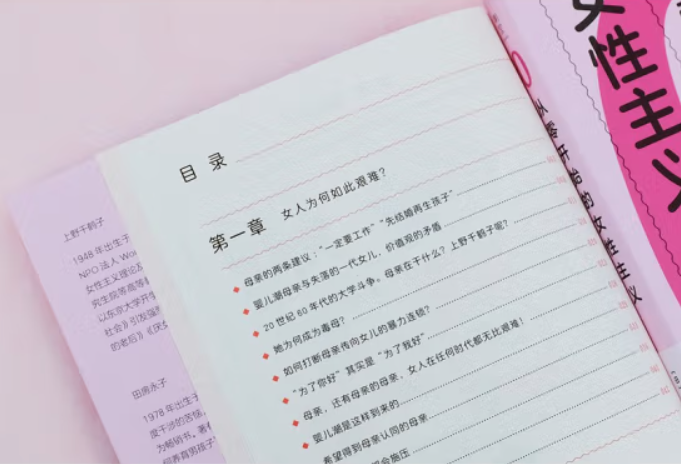 女性主义
从零开始的女性主义
目录
第一章 女人为何如此艰难?
母亲的两条建议:“一定要工作”“先结婚再生孩子”
婴儿潮母亲与失落的一代女儿,价值观的矛盾
20世纪60年代的大学斗争。母亲在干什么?上野千鹤子呢?
她为何成为毒母?
如何打断母亲传向女儿的暴力连锁?
“为了你好”其实是“为了我好”
母亲,还有母亲的母亲,女人在任何时代都无比艰难!
婴儿潮是这样到来的
希望得到母亲认同的母亲
会施压
上野千鹤子
1948年出生于
NPO法人Wo
女性主义理论及
究生院等高等
以东京大学开学
社会》引发强烈
的老后》《厌女
田房永子
1978年出生于
度干涉的苦恼,
为畅销书。著有
何养育男孩子